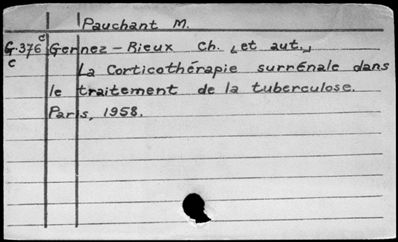 Pauchant M.
G.376 c Gernez-Rieux Ch. [et aut.]
c
La Corticothérapie surrénale dans
le traitement de la tuberculose.
Paris, 1958.